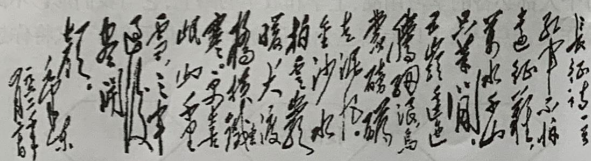 长征诗一首
红军不怕
远征难。
万水千山
只等闲。
五岭逶迤
腾细浪,乌
蒙磅礴
走泥丸。
金沙水
拍云崖
暖,大渡
桥横铁索
寒。更喜
岷山千里
雪,三军
过后
尽开
颜。
毛泽东